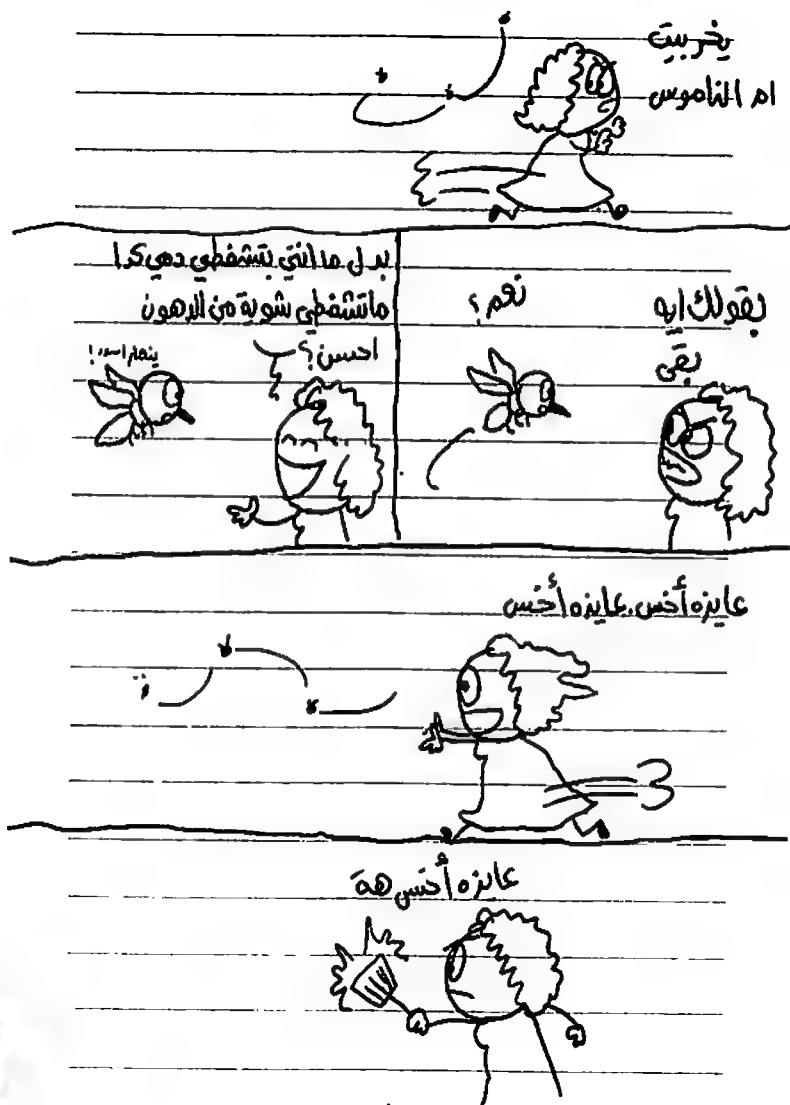 يخربيت
ام الناموس
بقولك ايه
بقى
نعم؟
بدل ما انتي بتشفطي دمي كدا
ماتشفطي شوية من الدهون
احسن؟
ينهار اسود!
عايزه أخس، عايزه أخس
عايزه أخس هه